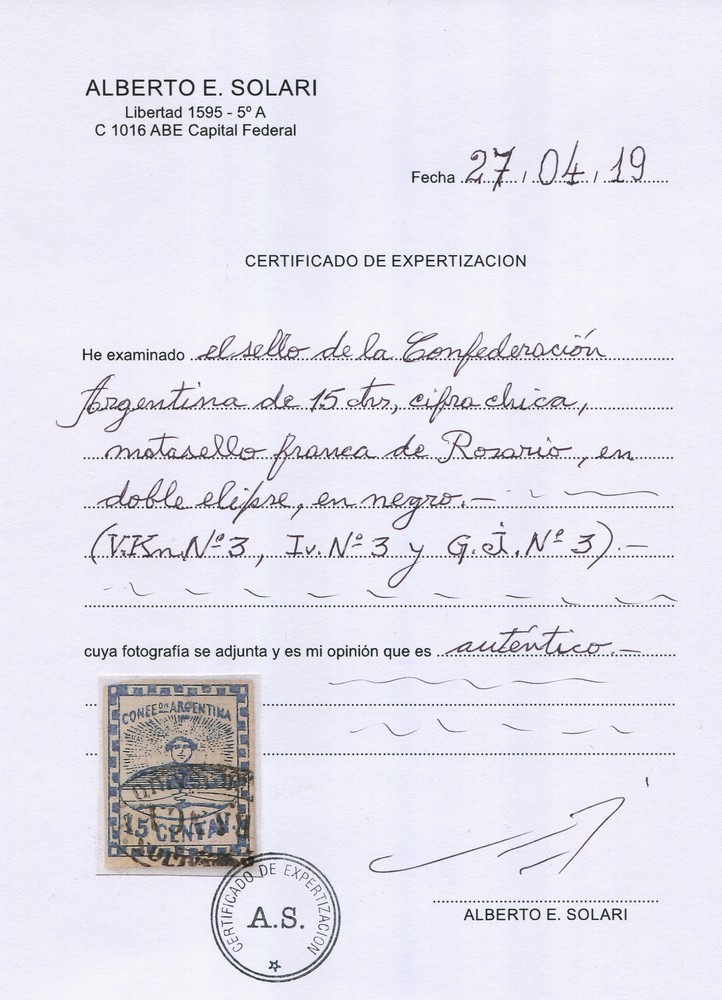 ALBERTO E. SOLARI
Libertad 1595 - 5º A
C 1016 ABE Capital Federal
Fecha 27 / 04 / 19
CERTIFICADO DE EXPERTIZACION
He examinado el sello de la Confederación
Argentina de 15 ctvs, cifra chica,
matasello franca de Rosario, en
doble elipse, en negro.-
(V.Kn.Nº3, Iv.Nº3 y G.J.Nº3).-
cuya fotografía se adjunta y es mi opinión que es auténtico.-
CONFEON ARGENTINA
15 CENTAV.
CERTIFICADO DE EXPERTIZACION
A.S.
ALBERTO E. SOLARI